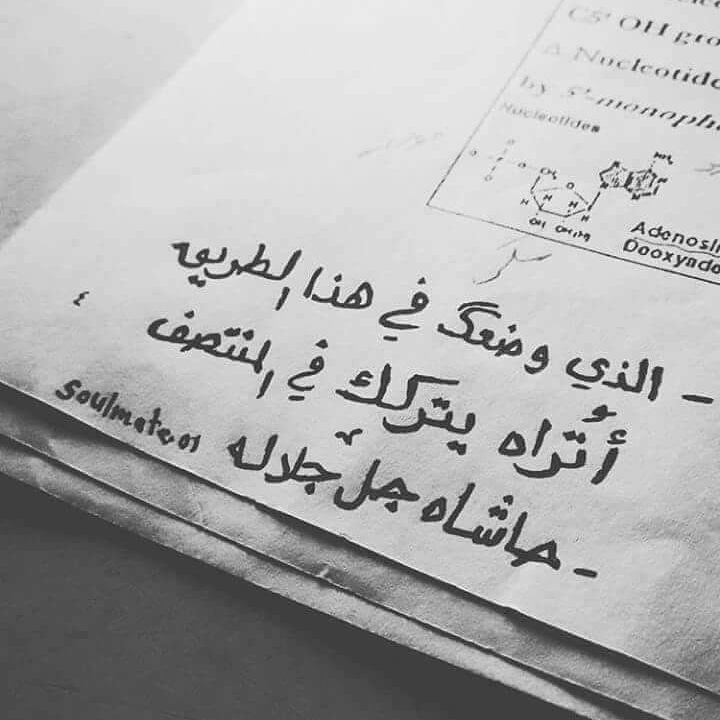 C5' OH gro
Δ Nucleotide
by 5'-monoph
Nucleotides
NH₂
Adenosi
Deoxyade
- الذي وضعك في هذا الطريق
أتُراه يتركك في المنتصف
- حاشاه جلّ جلاله
soulmate.01
٤